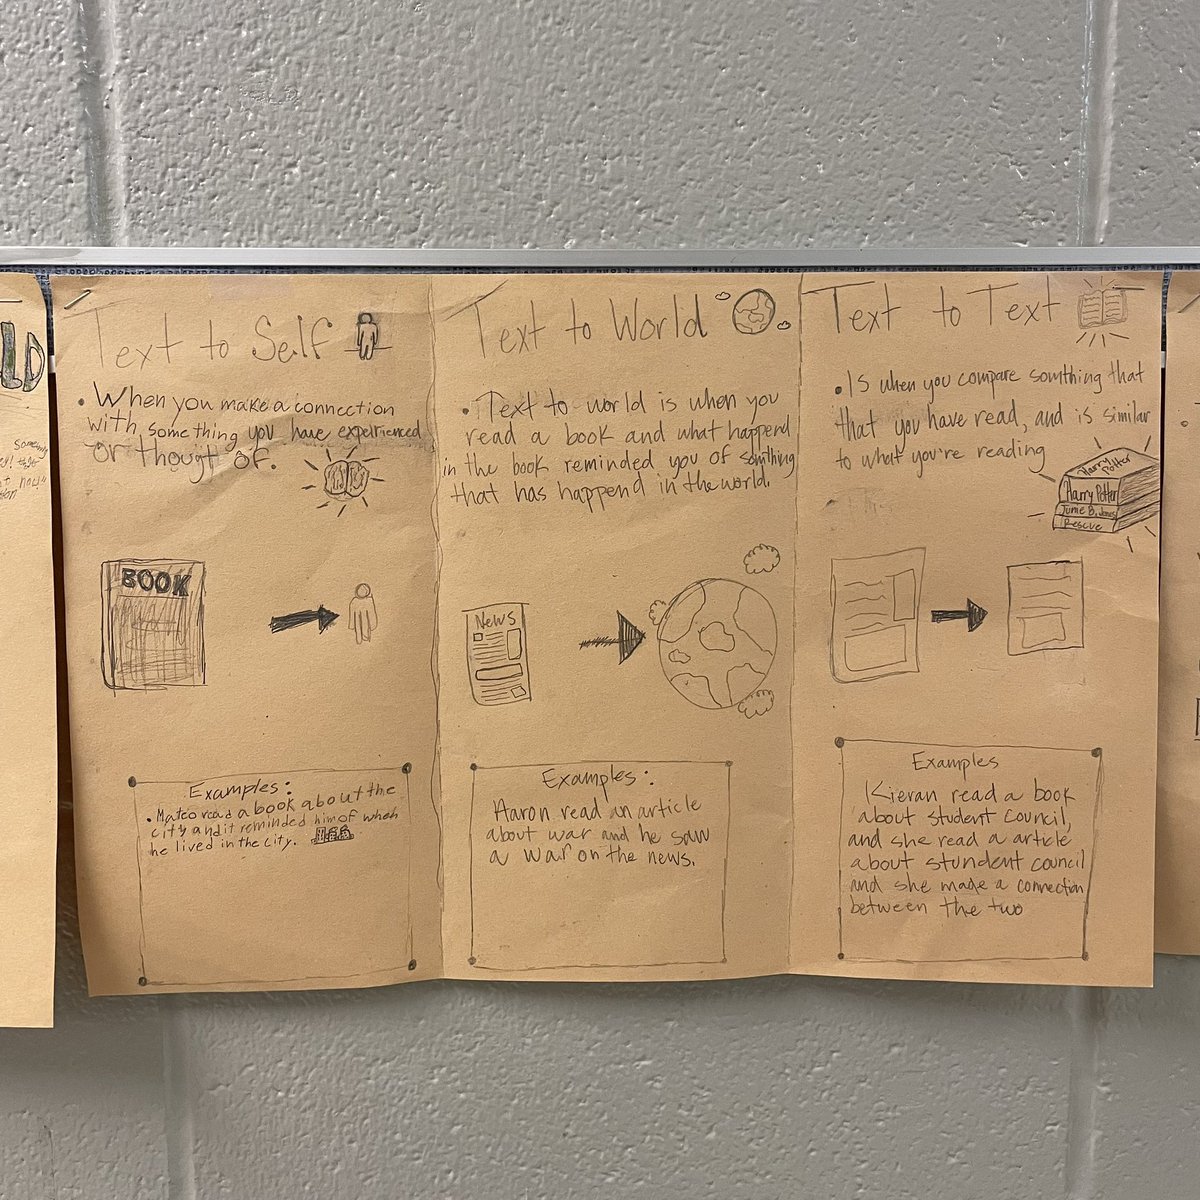 LD
Text to Self
• When you make a connection
with, something you have experienced
or thougt of.
BOOK
Examples:
• Mateo read a book about the
city and it reminded him of when
he lived in the city.
Text to World
• Text to world is when you
read a book and what happend
in the book reminded you of somthing
that has happend in the world.
News
Examples:
Aaron read an article
about war and he saw
a war on the news.
Text to Text
• Is when you compare somthing that
that you have read, and is similar
to what you're reading
Harry Potter
Harry Potter
Junie B. Jones
Rescue
Examples
Kieran read a book
about student Council,
and she read a article
about stundent council
and she made a connection
between the two